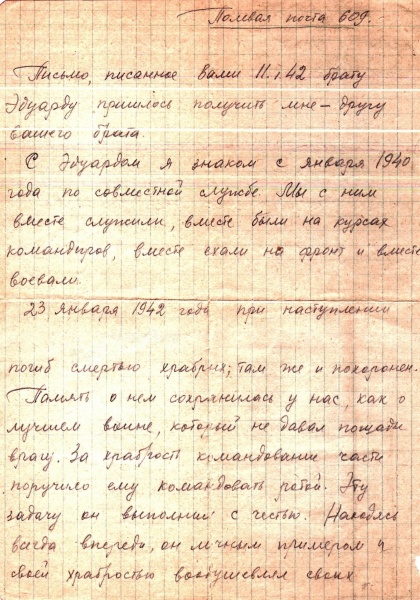 Полевая почта 609.
Письмо, писанное вами 11.I.42 брату
Эдуарду пришлось получить мне – другу
вашего брата.
С Эдуардом я знаком с января 1940
года по совместной службе. Мы с ним
вместе служили, вместе были на курсах
командиров, вместе ехали на фронт и вместе
воевали.
23 января 1942 года при наступлении
погиб смертью храбрых; там же и похоронен.
Память о нем сохранилась у нас, как о
лучшем воине, который не давал пощады
врагу. За храбрость командование части
поручило ему командовать ротой. Эту
задачу он выполнил с честью. Находясь
всегда впереди, он личным примером и
своей храбростью воодушевлял своих